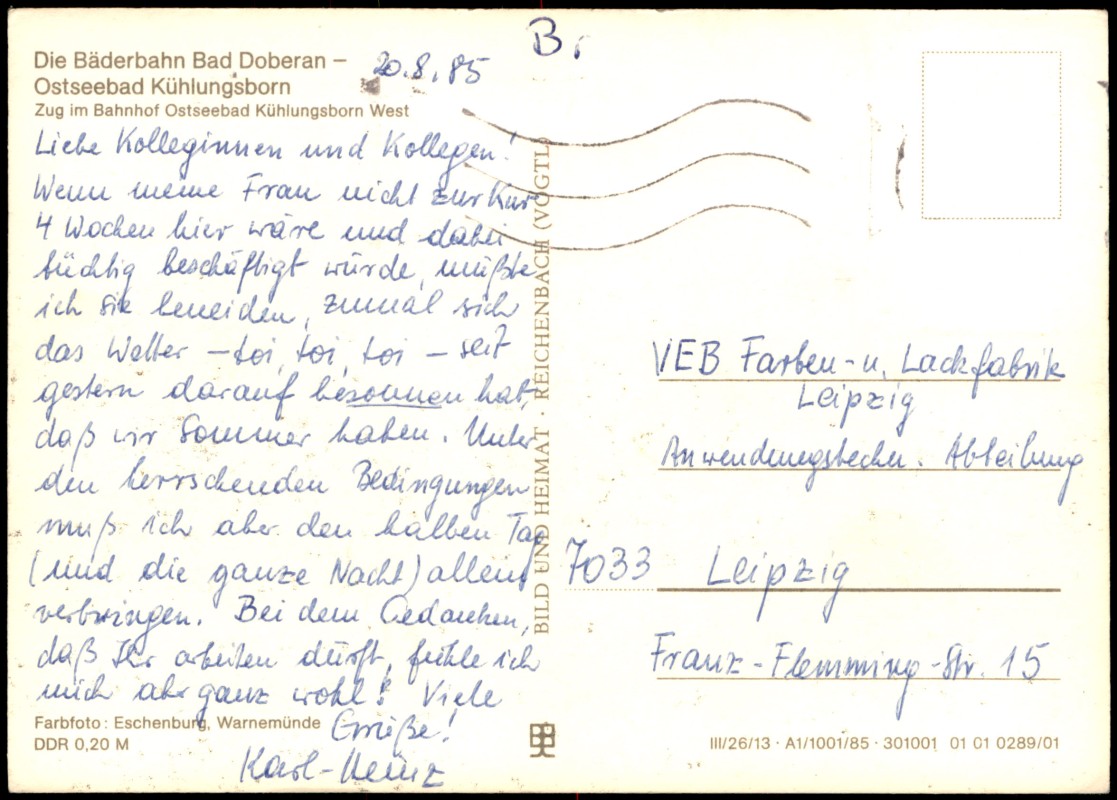 Br
Die Bäderbahn Bad Doberan –
Ostseebad Kühlungsborn
Zug im Bahnhof Ostseebad Kühlungsborn West
20.8.85
Liebe Kolleginnen und Kollegen!
Wenn meine Frau nicht zur Kur
4 Wochen hier wäre und dabei
tüchtig beschäftigt würde, müßte
ich sie beneiden, zumal sich
das Wetter – toi, toi, toi – seit
gestern darauf besonnen hat,
daß wir Sommer haben. Unter
den herrschenden Bedingungen
muß ich aber den halben Tag
(und die ganze Nacht) allein
verbringen. Bei dem Gedanken,
daß Ihr arbeiten dürft, fühle ich
mich aber ganz wohl! Viele
Grüße!
Karl-Heinz
Farbfoto: Eschenburg, Warnemünde
DDR 0,20 M
BILD UND HEIMAT · REICHENBACH (VOGTL)
VEB Farben- u. Lackfabrik
Leipzig
Anwendungstechn. Abteilung
7033 Leipzig
Franz-Flemming-Str. 15
III/26/13 · A1/1001/85 · 301001 01 01 0289/01